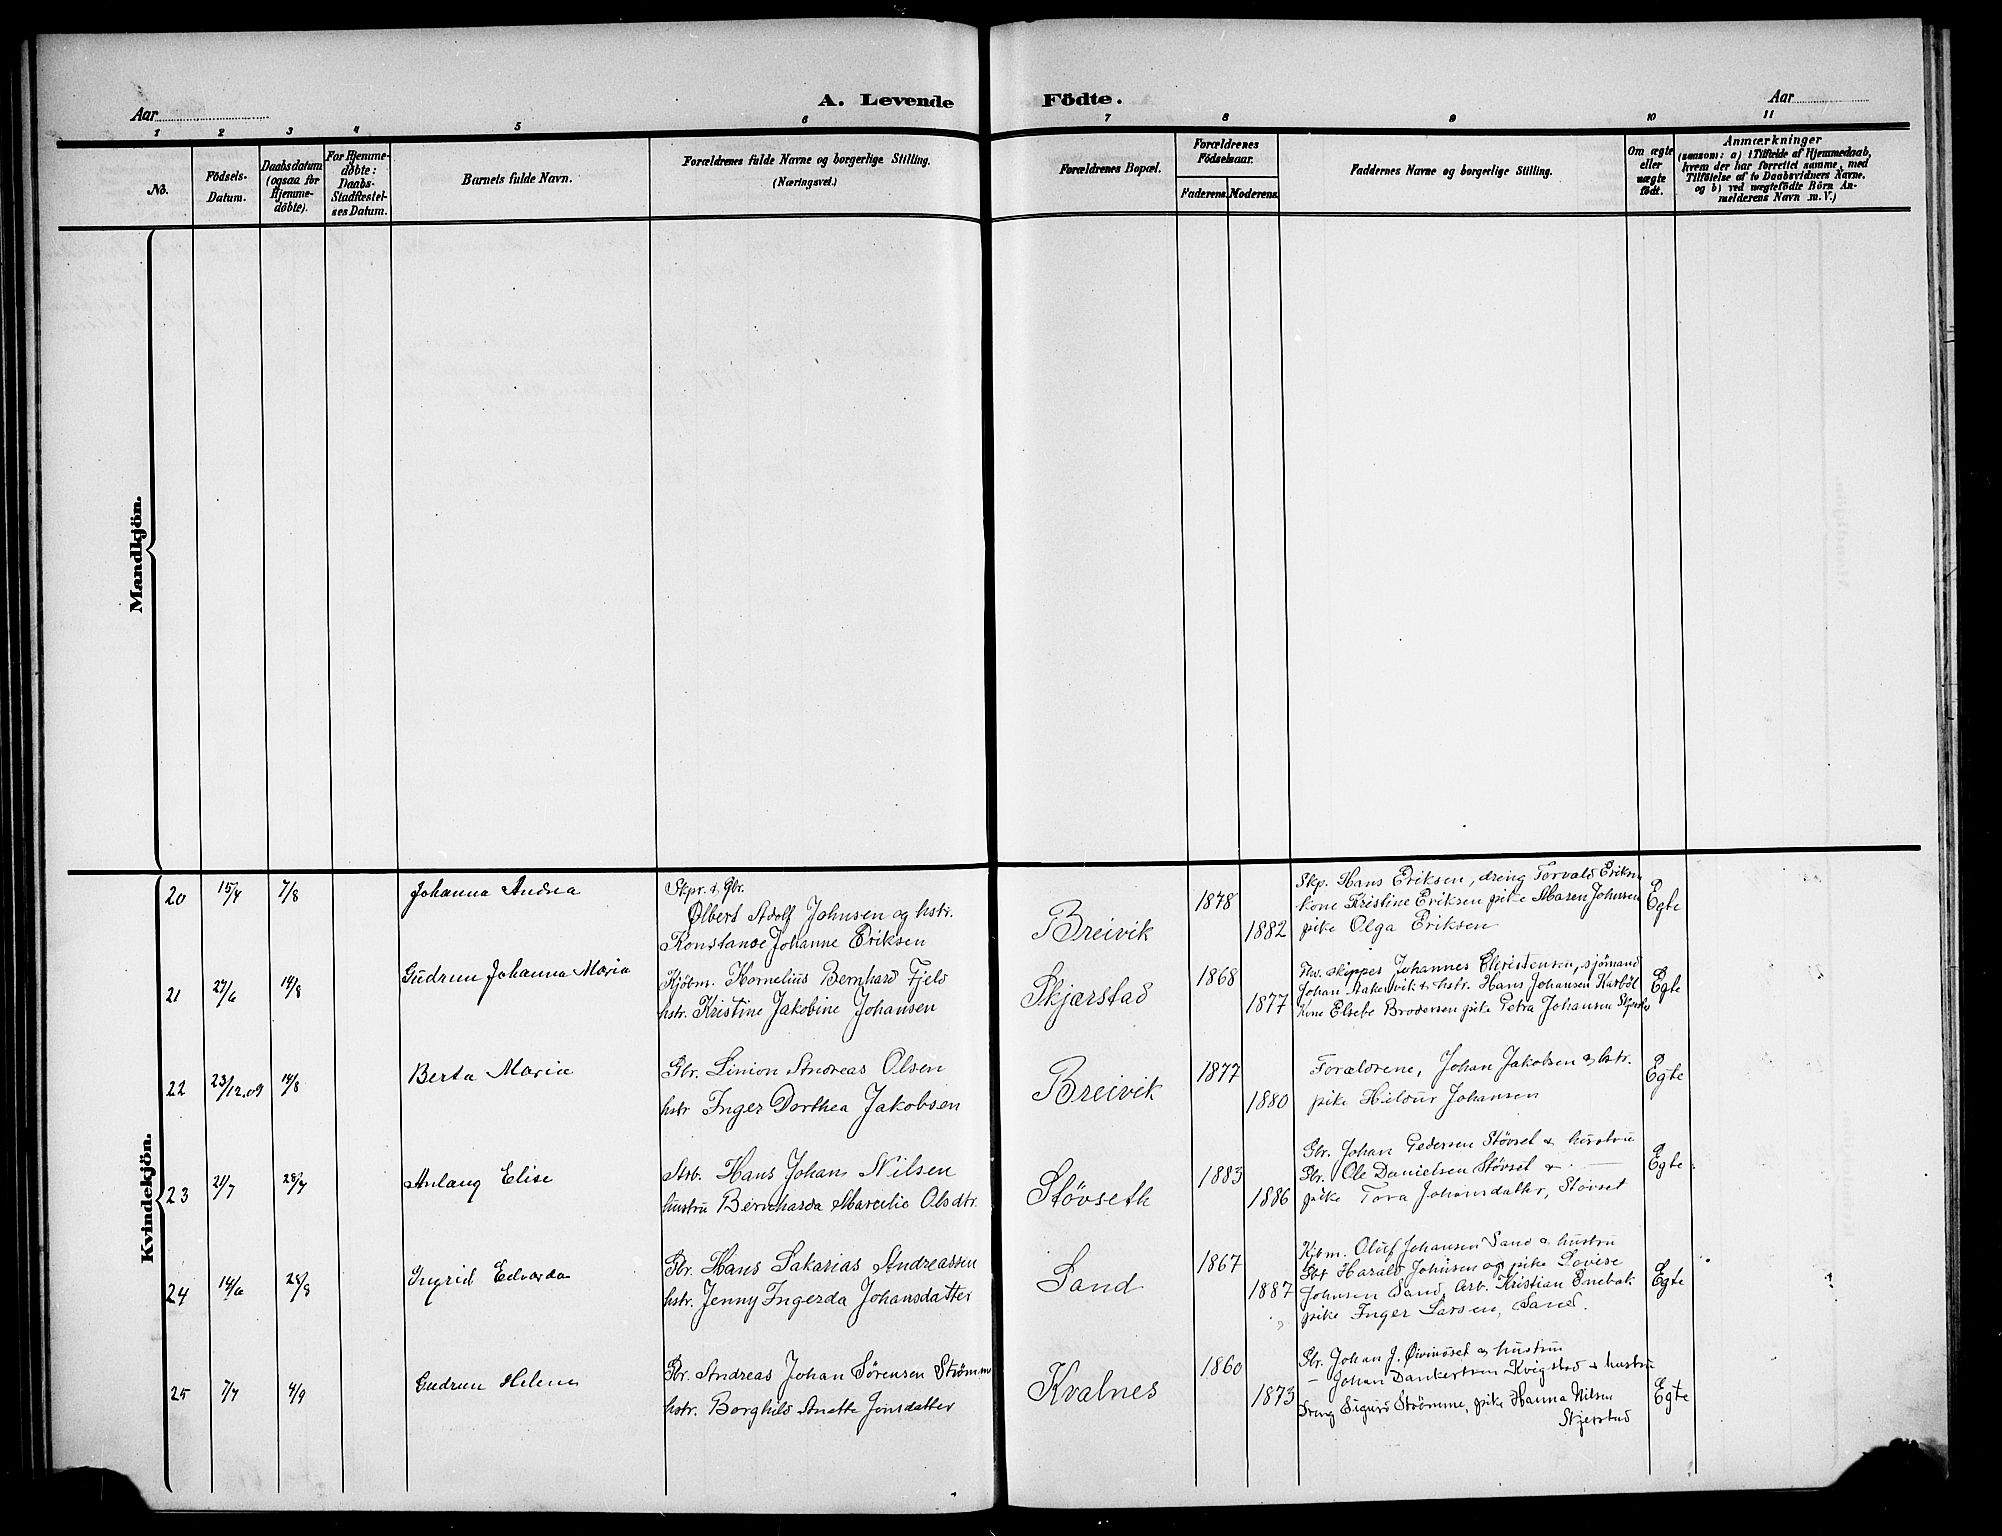 A. Levende Födte.
Aar
Aar
1 2 3 4 5 6 7 8 9 10 11
No.
Födsels-
Datum.
Daabsdatum
(ogsaa for
Hjemme-
døbte).
For Hjemme-
døbte:
Daabs-
Stadfæstel-
ses Datum.
Barnets fulde Navn.
Forældrenes fulde Navne og borgerlige Stilling.
(Næringsvei.)
Forældrenes Bopæl.
Forældrenes
Födselsaar.
Faderens. Moderens.
Faddernes Navne og borgerlige Stilling.
Om ægte
eller
uægte
födt.
Anmærkninger
(saasom: a) i Tilfælde af Hjemmedaab,
hvem der har forrettet samme, med
Tilföielse af to Daabsvidners Navne,
og b) ved uægtefödte Börn An-
melderens Navn m. V.)
Mandkjön.
Kvindekjön.
20 15/4 7/8 Johanna Andrea
Skpr. & Gbr.
Olbert Adolf Johnsen og hstr.
Konstanse Johanne Eriksen
Breivik 1878 1882
Skp. Hans Eriksen, dreng Torvald Eriksen
kone Kristine Eriksen pike Maren Johnsen
pike Olga Eriksen
Egte
21 29/6 14/8 Gudrun Johanna Maria
Kjöbm. Kornelius Bernhard Fjeld
hstr. Kristine Jakobine Johansen
Skjærstad 1868 1877
skipper Johannes Christensen, sjömand
Johan & hstr. Hans Johansen
Kone Elsebe Brodersen pike Petra Johansen
Egte
22 23/12.09 14/8 Berta Maria
Gbr. Simon Andreas Olsen
hstr Inger Dorthea Jakobsen
Breivik 1877 1880
Forældrene, Johan Jakobsen & hstr.
pike Hildur Johansen
Egte
23 21/7 28/7 Anlaug Elise
Arb. Hans Johan Nilsen
hustru Bernharda Marcelie Olsdtr.
Stövseth 1883 1886
Gbr. Johan Pedersen Stövset & hustru
Gbr. Ole Danielsen Stövset & —
pike Tora Johansdatter, Stövset
Egte
24 14/6 28/8 Ingrid Edvarda
Gbr. Hans Sakarias Andreassen
hstr. Jenny Ingerda Johansdatter
Sand 1867 1887
Kjbm. Oluf Johansen Sand & hustru
Gbr Harald Johnsen og pike Lovise
Johnsen Sand, Arb. Kristian Enebak
pike Inger Larsen, Sand.
Egte
25 7/7 4/9 Gudrun Helene
Gbr. Andreas Johan Sørensen Strömm
hstr. Borghild Anette Jensdatter
Kvalnes 1860 1873
Gbr. Johan J. Øivindset & hustru
— Johan Dankertsen Kvigstad & hustru
Dreng Sigurd Strömme, pike Hanna Nilsen
Skjerstad
Egte